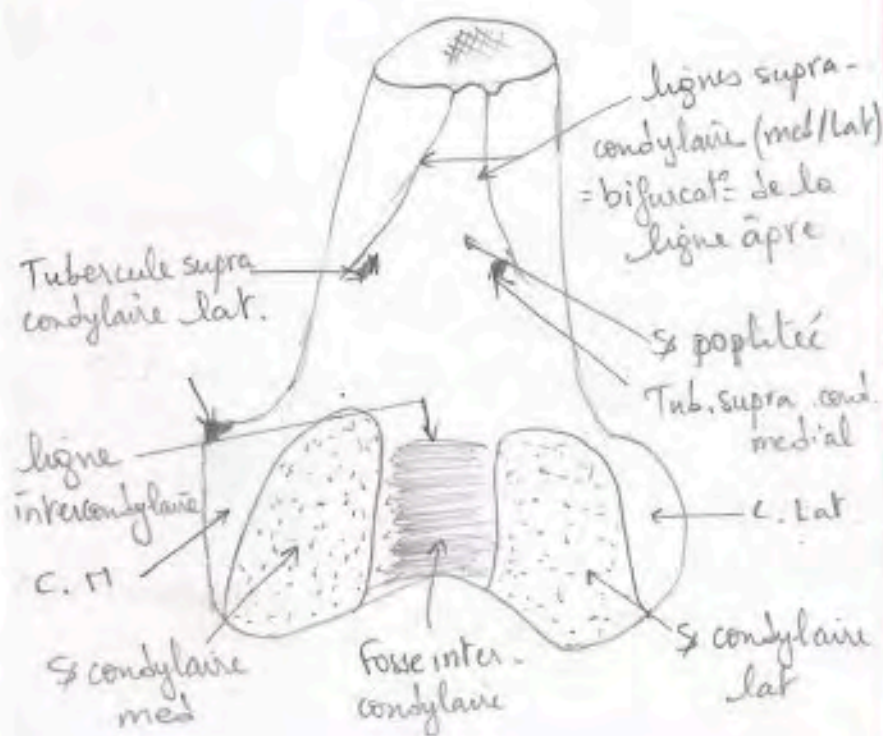 lignes supra-
condylaire (med/lat)
= bifurcat° de la
ligne âpre
Tubercule supra
condylaire lat.
poplitée
Tub. supra cond.
medial
ligne
intercondylaire
C. Lat
C. M
condylaire
med
Fosse inter-
condylaire
condylaire
lat